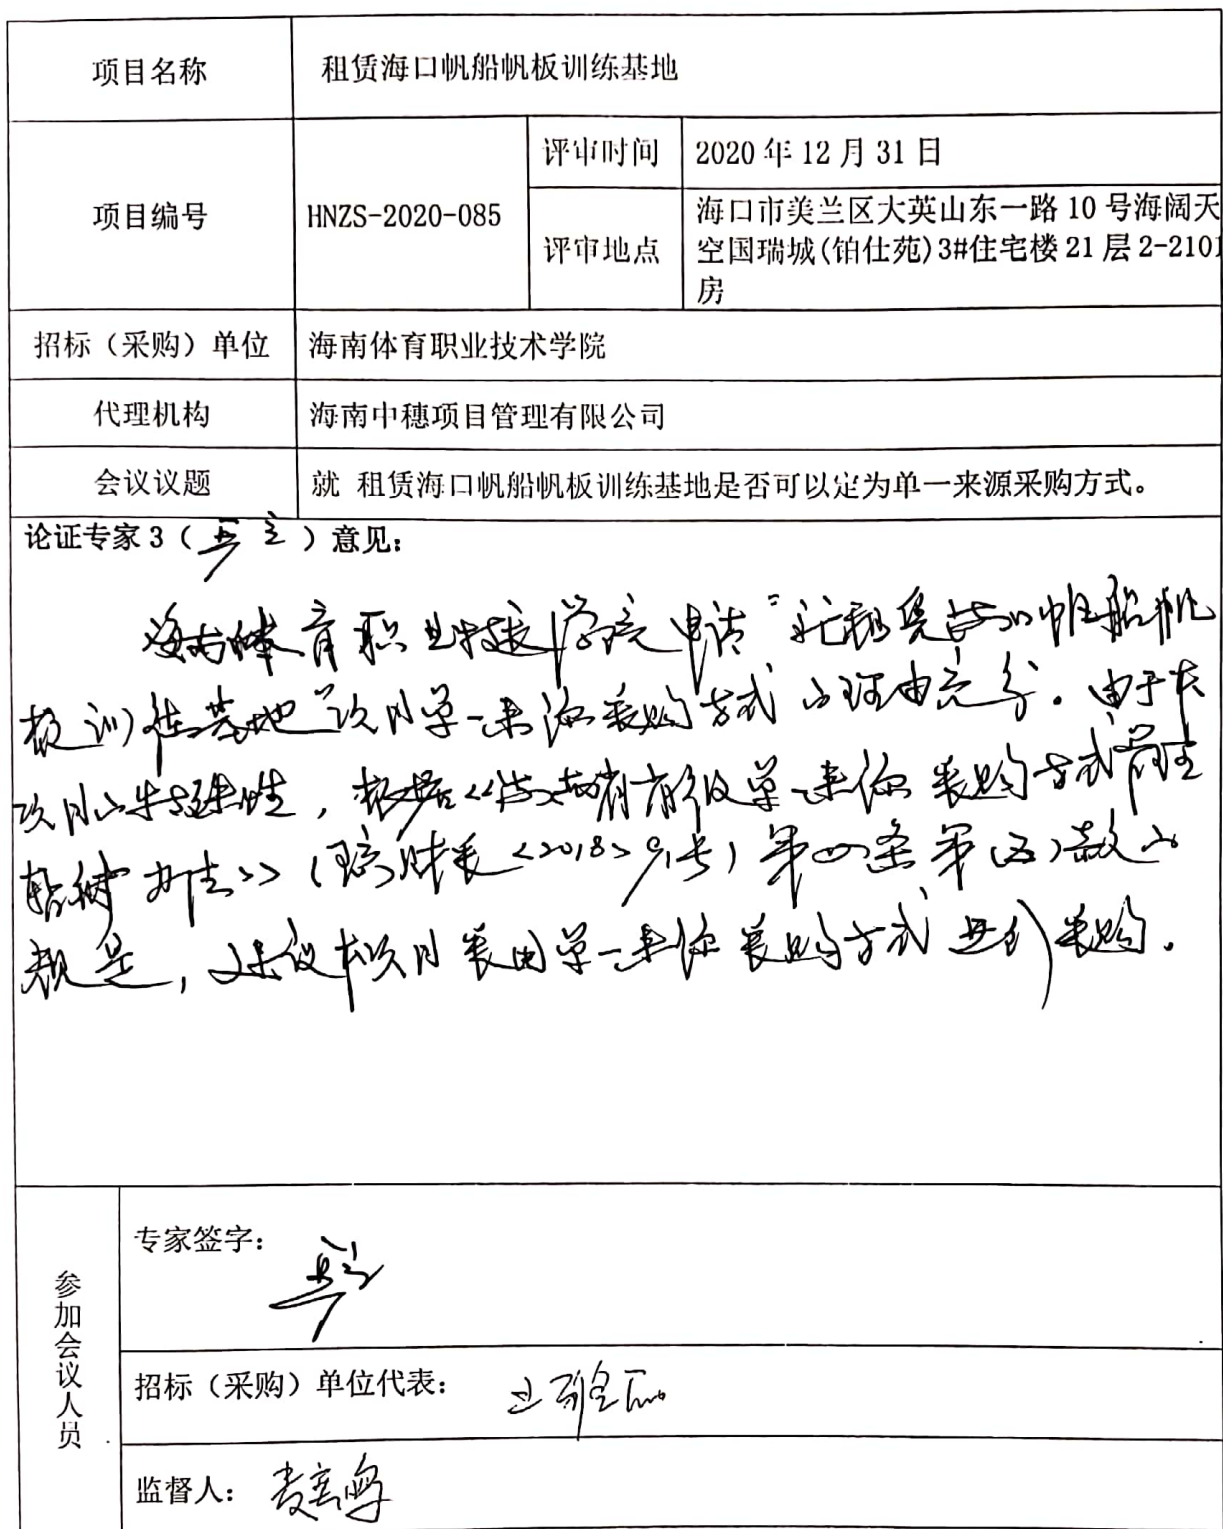 项目名称 租赁海口帆船帆板训练基地
项目编号 HNZS-2020-085 评审时间 2020年12月31日
评审地点 海口市美兰区大英山东一路10号海阔天
空国瑞城(铂仕苑)3#住宅楼21层2-2101
房
招标（采购）单位 海南体育职业技术学院
代理机构 海南中穗项目管理有限公司
会议议题 就 租赁海口帆船帆板训练基地是否可以定为单一来源采购方式。
论证专家3（）意见：
海南体育职业技术学院申请“租赁海口帆船帆
板训练基地”项目单一来源采购方式的理由充分。由于本
项目的特殊性，根据《海南省省级单一来源采购方式管理
暂行办法》（琼财采<2018>号）第四条第（五）款的
规定，建议本项目采用单一来源采购方式进行采购。
参加会议人员
专家签字：
招标（采购）单位代表：
监督人：